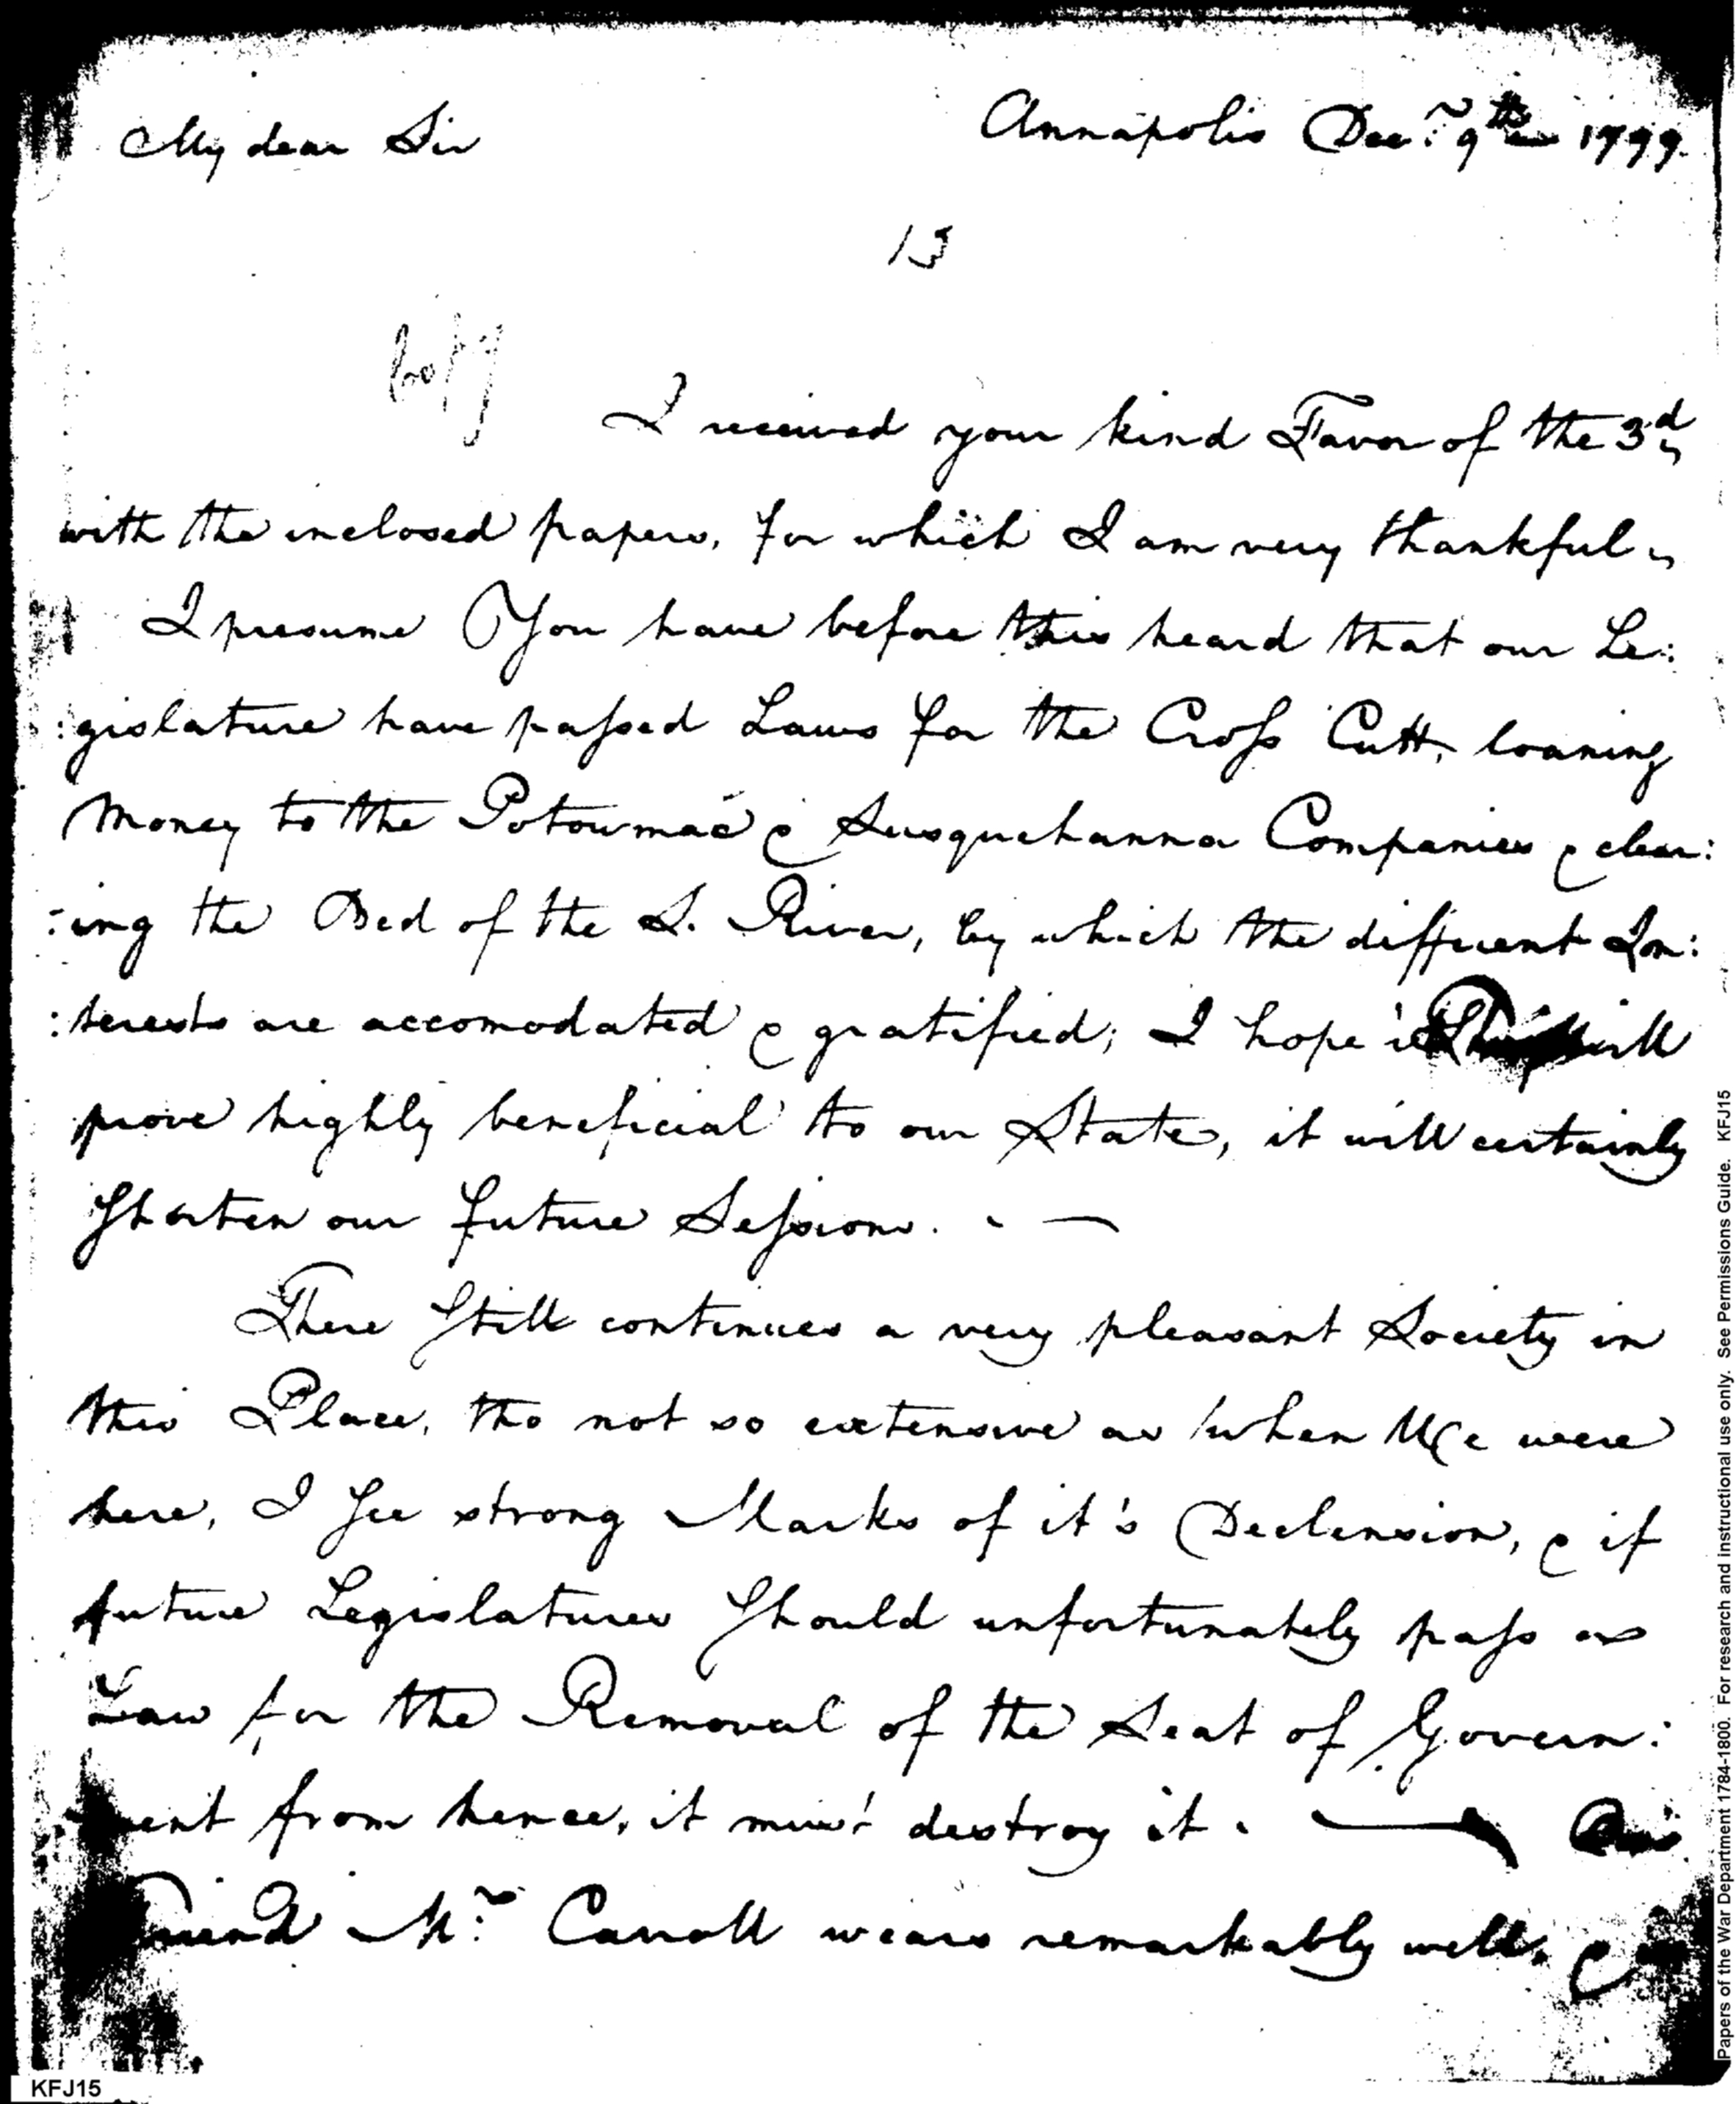 My dear Sir
Annapolis Dec.r 9th 1799.
13
I received your kind Favor of the 3d,
with the inclosed papers, for which I am very thankful,
I presume You have before this heard that our Le:
:gislature have passed Laws for the Cross Cutt, loaning
Money to the Potowmac & Susquehanna Companies & clear:
:ing the Bed of the S. River, by which the different In:
:terests are accomodated & gratified; I hope it will
prove highly beneficial to our State, it will certainly
shorten our future Sessions. . —
There still continues a very pleasant Society in
this Place, tho not so extensive as when We were
here, I see strong Marks of it's Declension, & if
future Legislatures should unfortunately pass a
Law for the Removal of the Seat of Govern:
ment from hence, it must destroy it. — Our
Friend Mr. Carroll wears remarkably well, &
KFJ15
Papers of the War Department 1784-1800. For research and instructional use only. See Permissions Guide. KFJ15